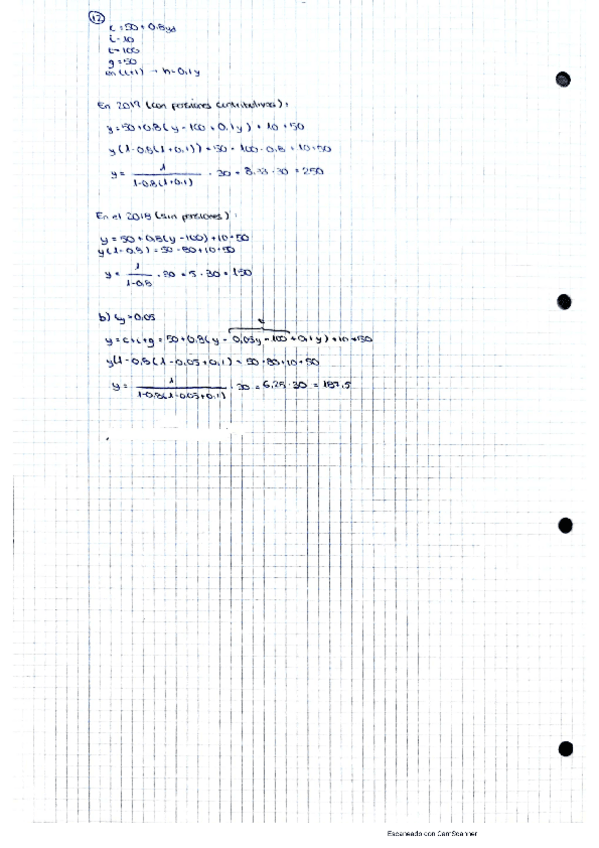 12
c = 50 + 0.8yd
i = 10
t = 100
g = 50
en (t+1) → h = 0.1y
En 2019 (con pensiones contributivas):
y = 50 + 0.8(y - 100 + 0.1y) + 10 + 50
y(1 - 0.8(1 + 0.1)) = 50 - 100 · 0.8 + 10 + 50
y = 1 / 1 - 0.8(1 + 0.1) · 30 = 8.33 · 30 = 250
En el 2018 (sin pensiones):
y = 50 + 0.8(y - 100) + 10 + 50
y(1 - 0.8) = 50 - 80 + 10 + 50
y = 1 / 1 - 0.8 · 30 = 5 · 30 = 150
b) ty = 0.05
t
y = c + i + g = 50 + 0.8(y - 0.05y - 100 + 0.1y) + 10 + 50
y(1 - 0.8(1 - 0.05 + 0.1) = 50 - 80 + 10 + 50
y = 1 / 1 - 0.8(1 - 0.05 + 0.1) · 30 = 6.25 · 30 = 187.5
Escaneado con CamScanner